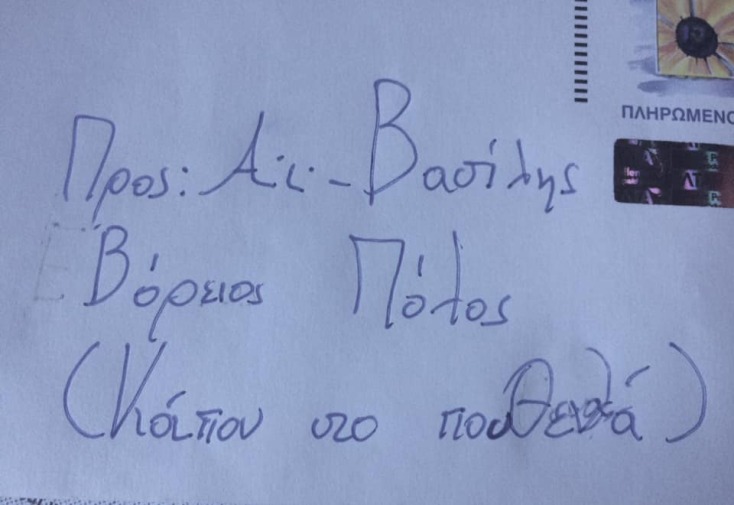 ΠΛΗΡΩΜΕΝΟ
Προς: Αϊ-Βασίλης
Βόρειος Πόλος
(Κάπου στο πουθενά)